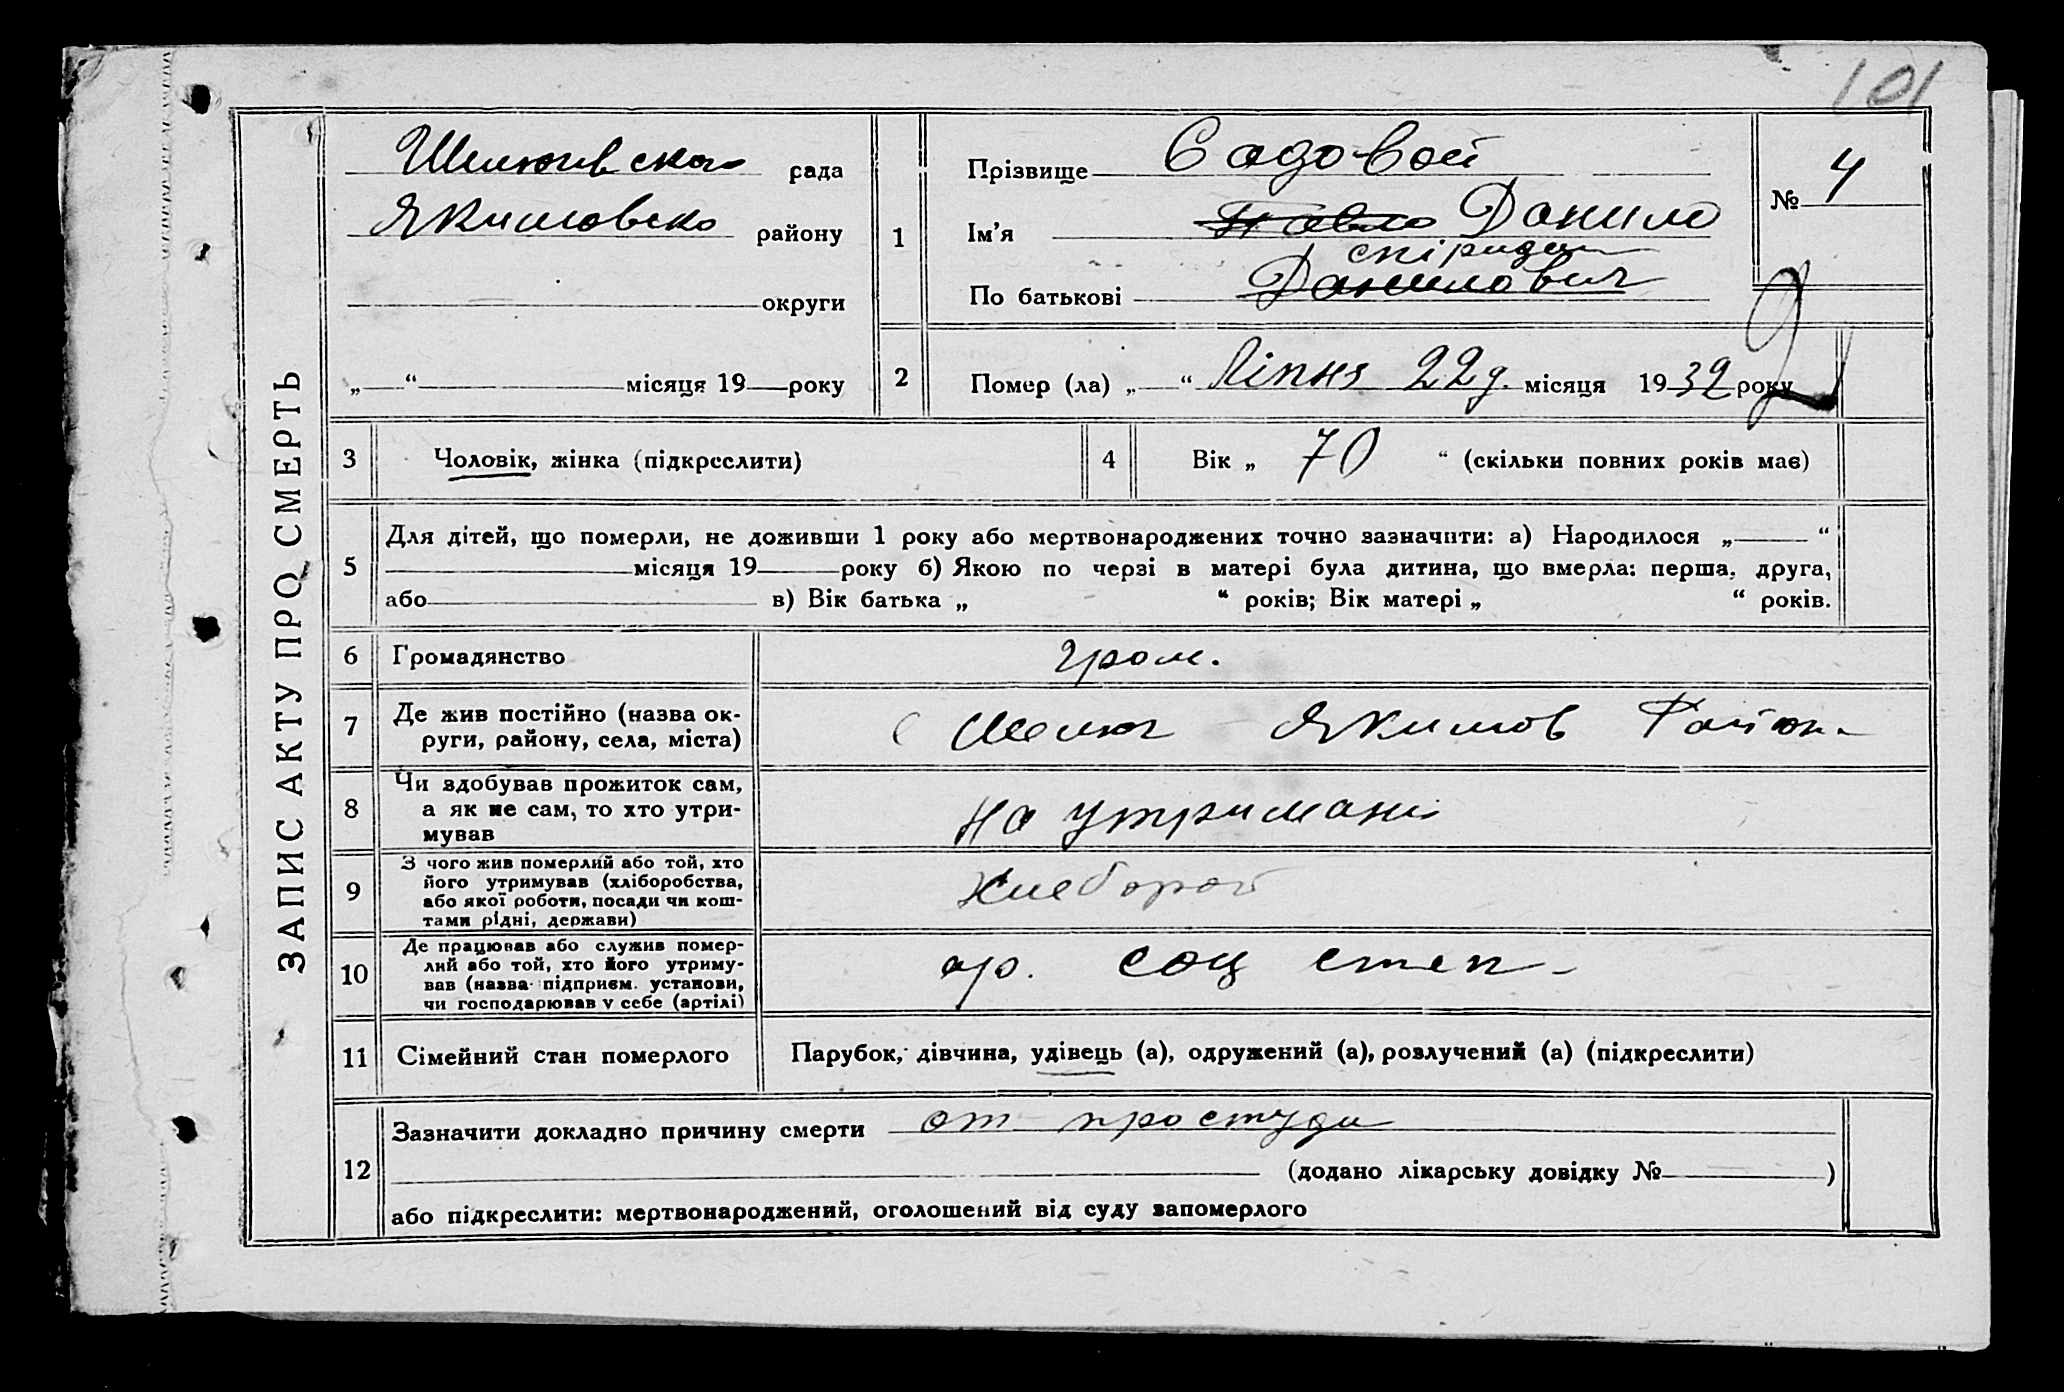 101
ЗАПИС АКТУ ПРО СМЕРТЬ
Шелюгівська рада
Якимовско району
округи
„ “ місяця 19 року
1
Прізвище Садовой
Ім’я Павло Данило
спіридон
По батькові Данилович
№ 4
2
Помер (ла) „ “ Ліпня 22 д. місяця 1932 року
3
Чоловік, жінка (підкреслити)
4
Вік „ 70 “ (скільки повних років має)
5
Для дітей, що померли, не доживши 1 року або мертвонароджених точно зазначити: а) Народилося „ “
місяця 19 року б) Якою по черзі в матері була дитина, що вмерла: перша, друга,
або в) Вік батька „ “ років; Вік матері „ “ років.
6
Громадянство
гром.
7
Де жив постійно (назва ок-
руги, району, села, міста)
с Шелюг Якимов Район
8
Чи здобував прожиток сам,
а як не сам, то хто утри-
мував
на утримані
9
З чого жив померлий або той, хто
його утримував (хліборобства,
або якої роботи, посади чи кош-
тами рідні, держави)
Хлеборот
10
Де працював або служив помер-
лий або той, хто його утриму-
вав (назва підприєм. установи,
чи господарював у себе (артілі)
ар. соц степ
11
Сімейний стан померлого
Парубок, дівчина, удівець (а), одружений (а), розлучений (а) (підкреслити)
12
Зазначити докладно причину смерти от простуди
(додано лікарську довідку № )
або підкреслити: мертвонароджений, оголошений від суду запомерлого